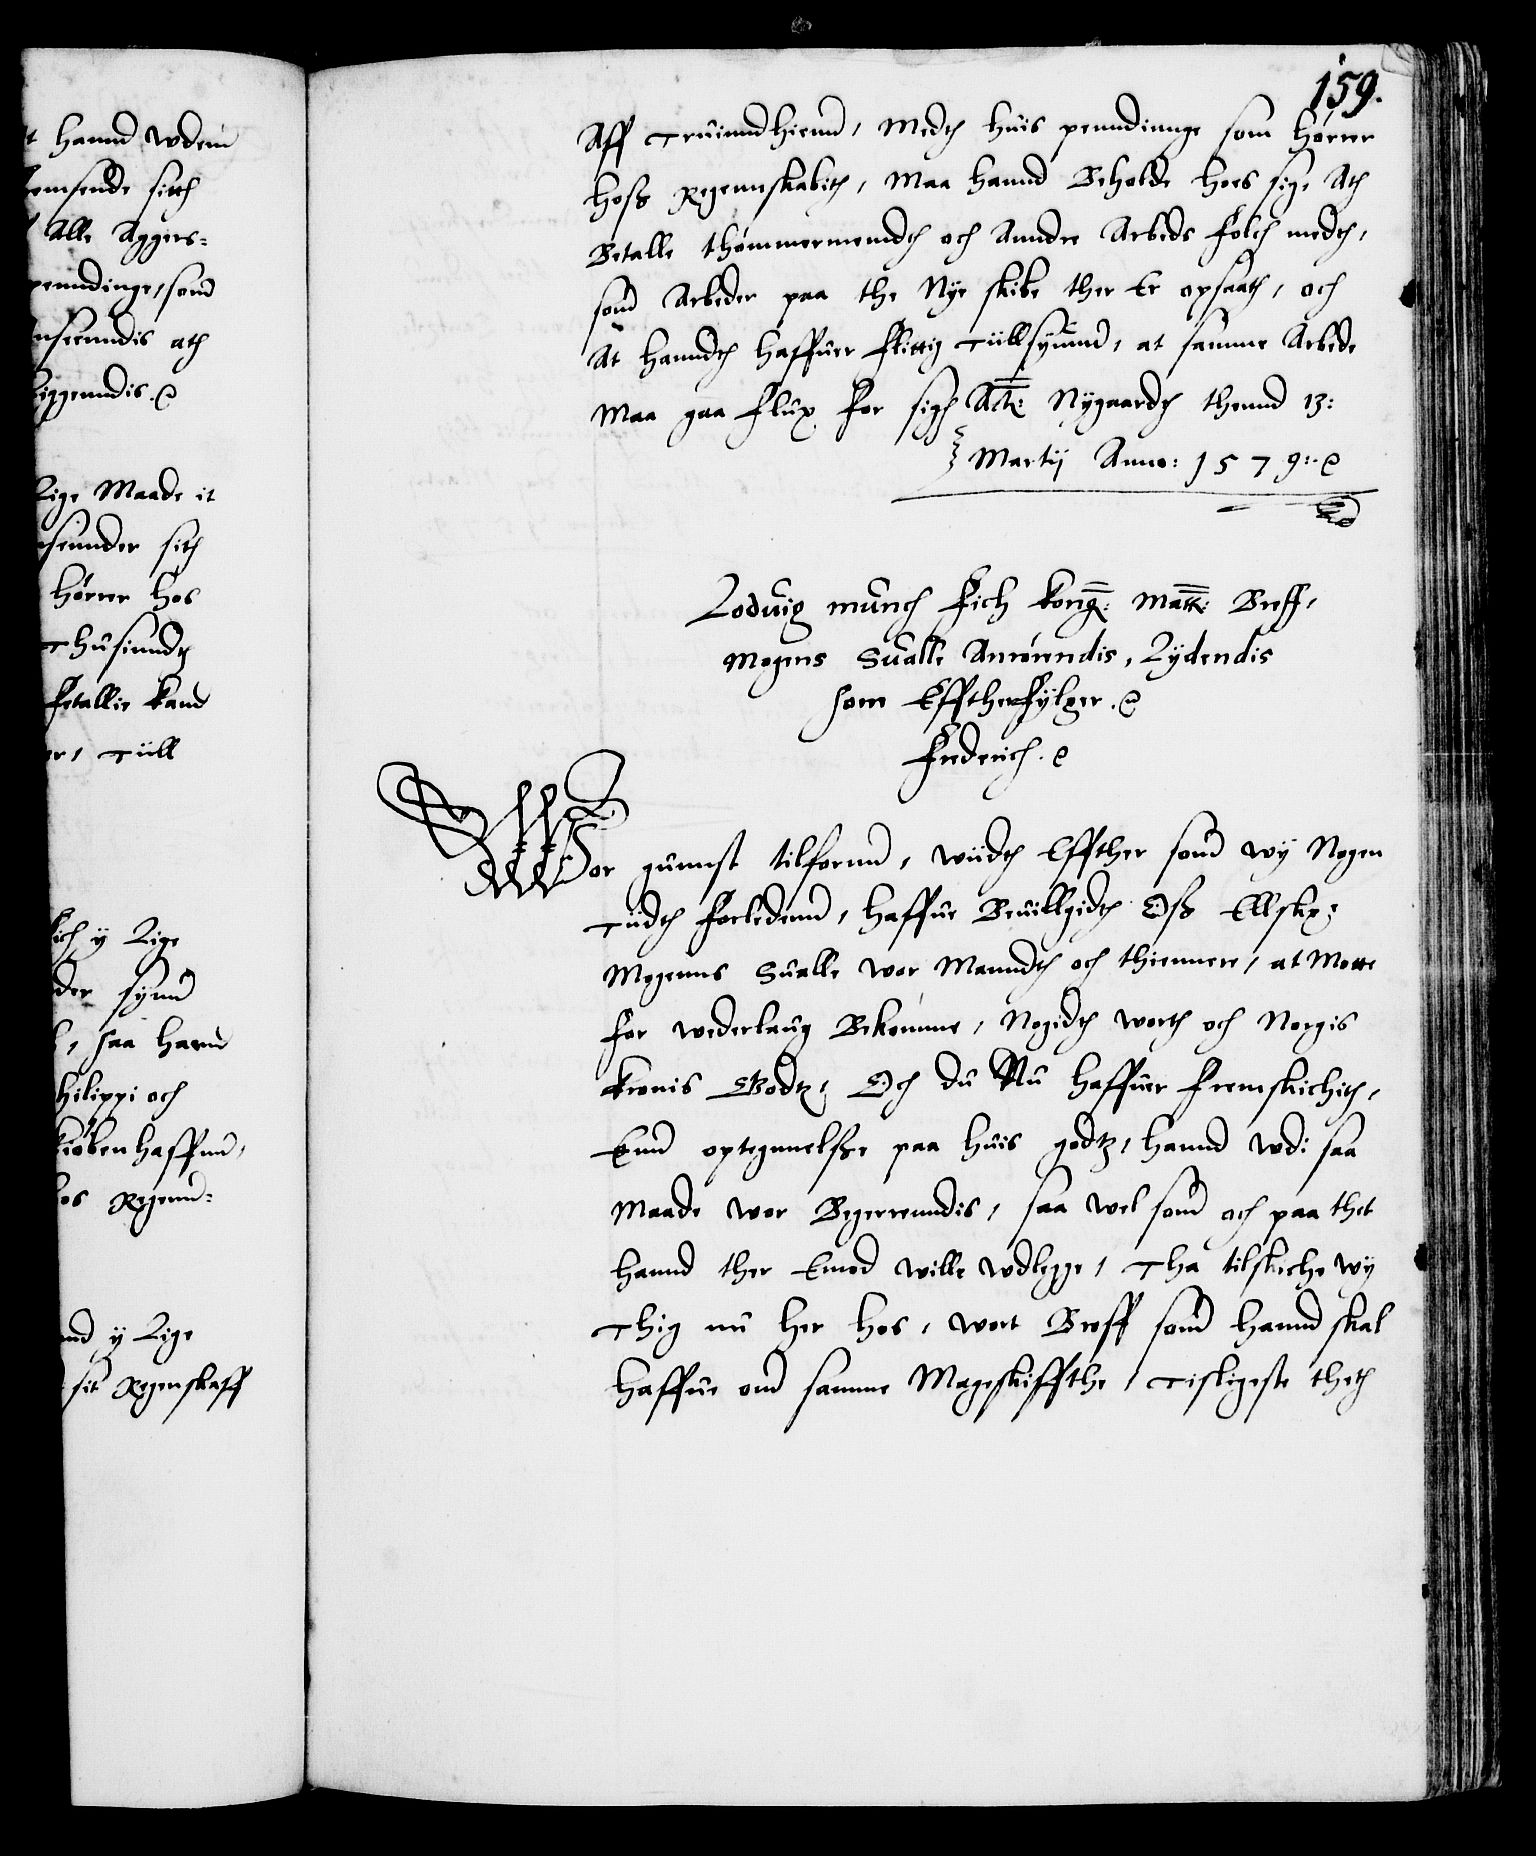 t hannd wdenn
emsende sitth
Alle Aggers=
penndinge, som
nseendis ath
liggenndis.
Lige Maade it
seunder sith
hörrer hos
Thusinndt
fetallie kand
er, Till
ich y Lige
der synn
l, saa hannd
hilippi och
Kiøbenhaffnn,
os Regenn=
nnd y Lige
sit Regenskaff
159.
Aff Truinndhiemm, Medt huis penndinnge som hörrer
hoss Regennskabith, Maa hannd Beholde hoes sige Ath
Betalle thömmermendt och Anndre Arbeds folch medt,
som Arbeder paa the Nye skibe ther Er opsaath, och
At hanndt haffuer flittig Tüllsynnd, at samme Arbede
Maa gaa flux for sigh Actt: Nygaardt thennd 13:
Martij Anno: 1579:
Loduig munch Fich Kong: Matt: Breff,
Mogens Sualle Anrörendis, Lydendis
som Effther fylger.
Frederich.
Wor gunnst tilfornn, wiidt Effther som wy Nogen
Tiidt forledenn, haffue Beuillgidt Oss Elskp:
Mogenns Sualle wor Manndt och thiennere, at Motte
for wederlaug Bekomme, Nogidt worth och Norgis
Kronis Godtz, Och du Nu haffuer fremskichith,
Enn optegnnelsse paa huis godtz, hannd wdi saa
Maade wor Begerrenndis, saa wel som och paa thet
hannd ther Emod wille wdlegge, Tha tilskiche wy
Thig nu her hos, wort Breff som hannd skal
haffue om samme Mageskiffthe, Tisligeste theth